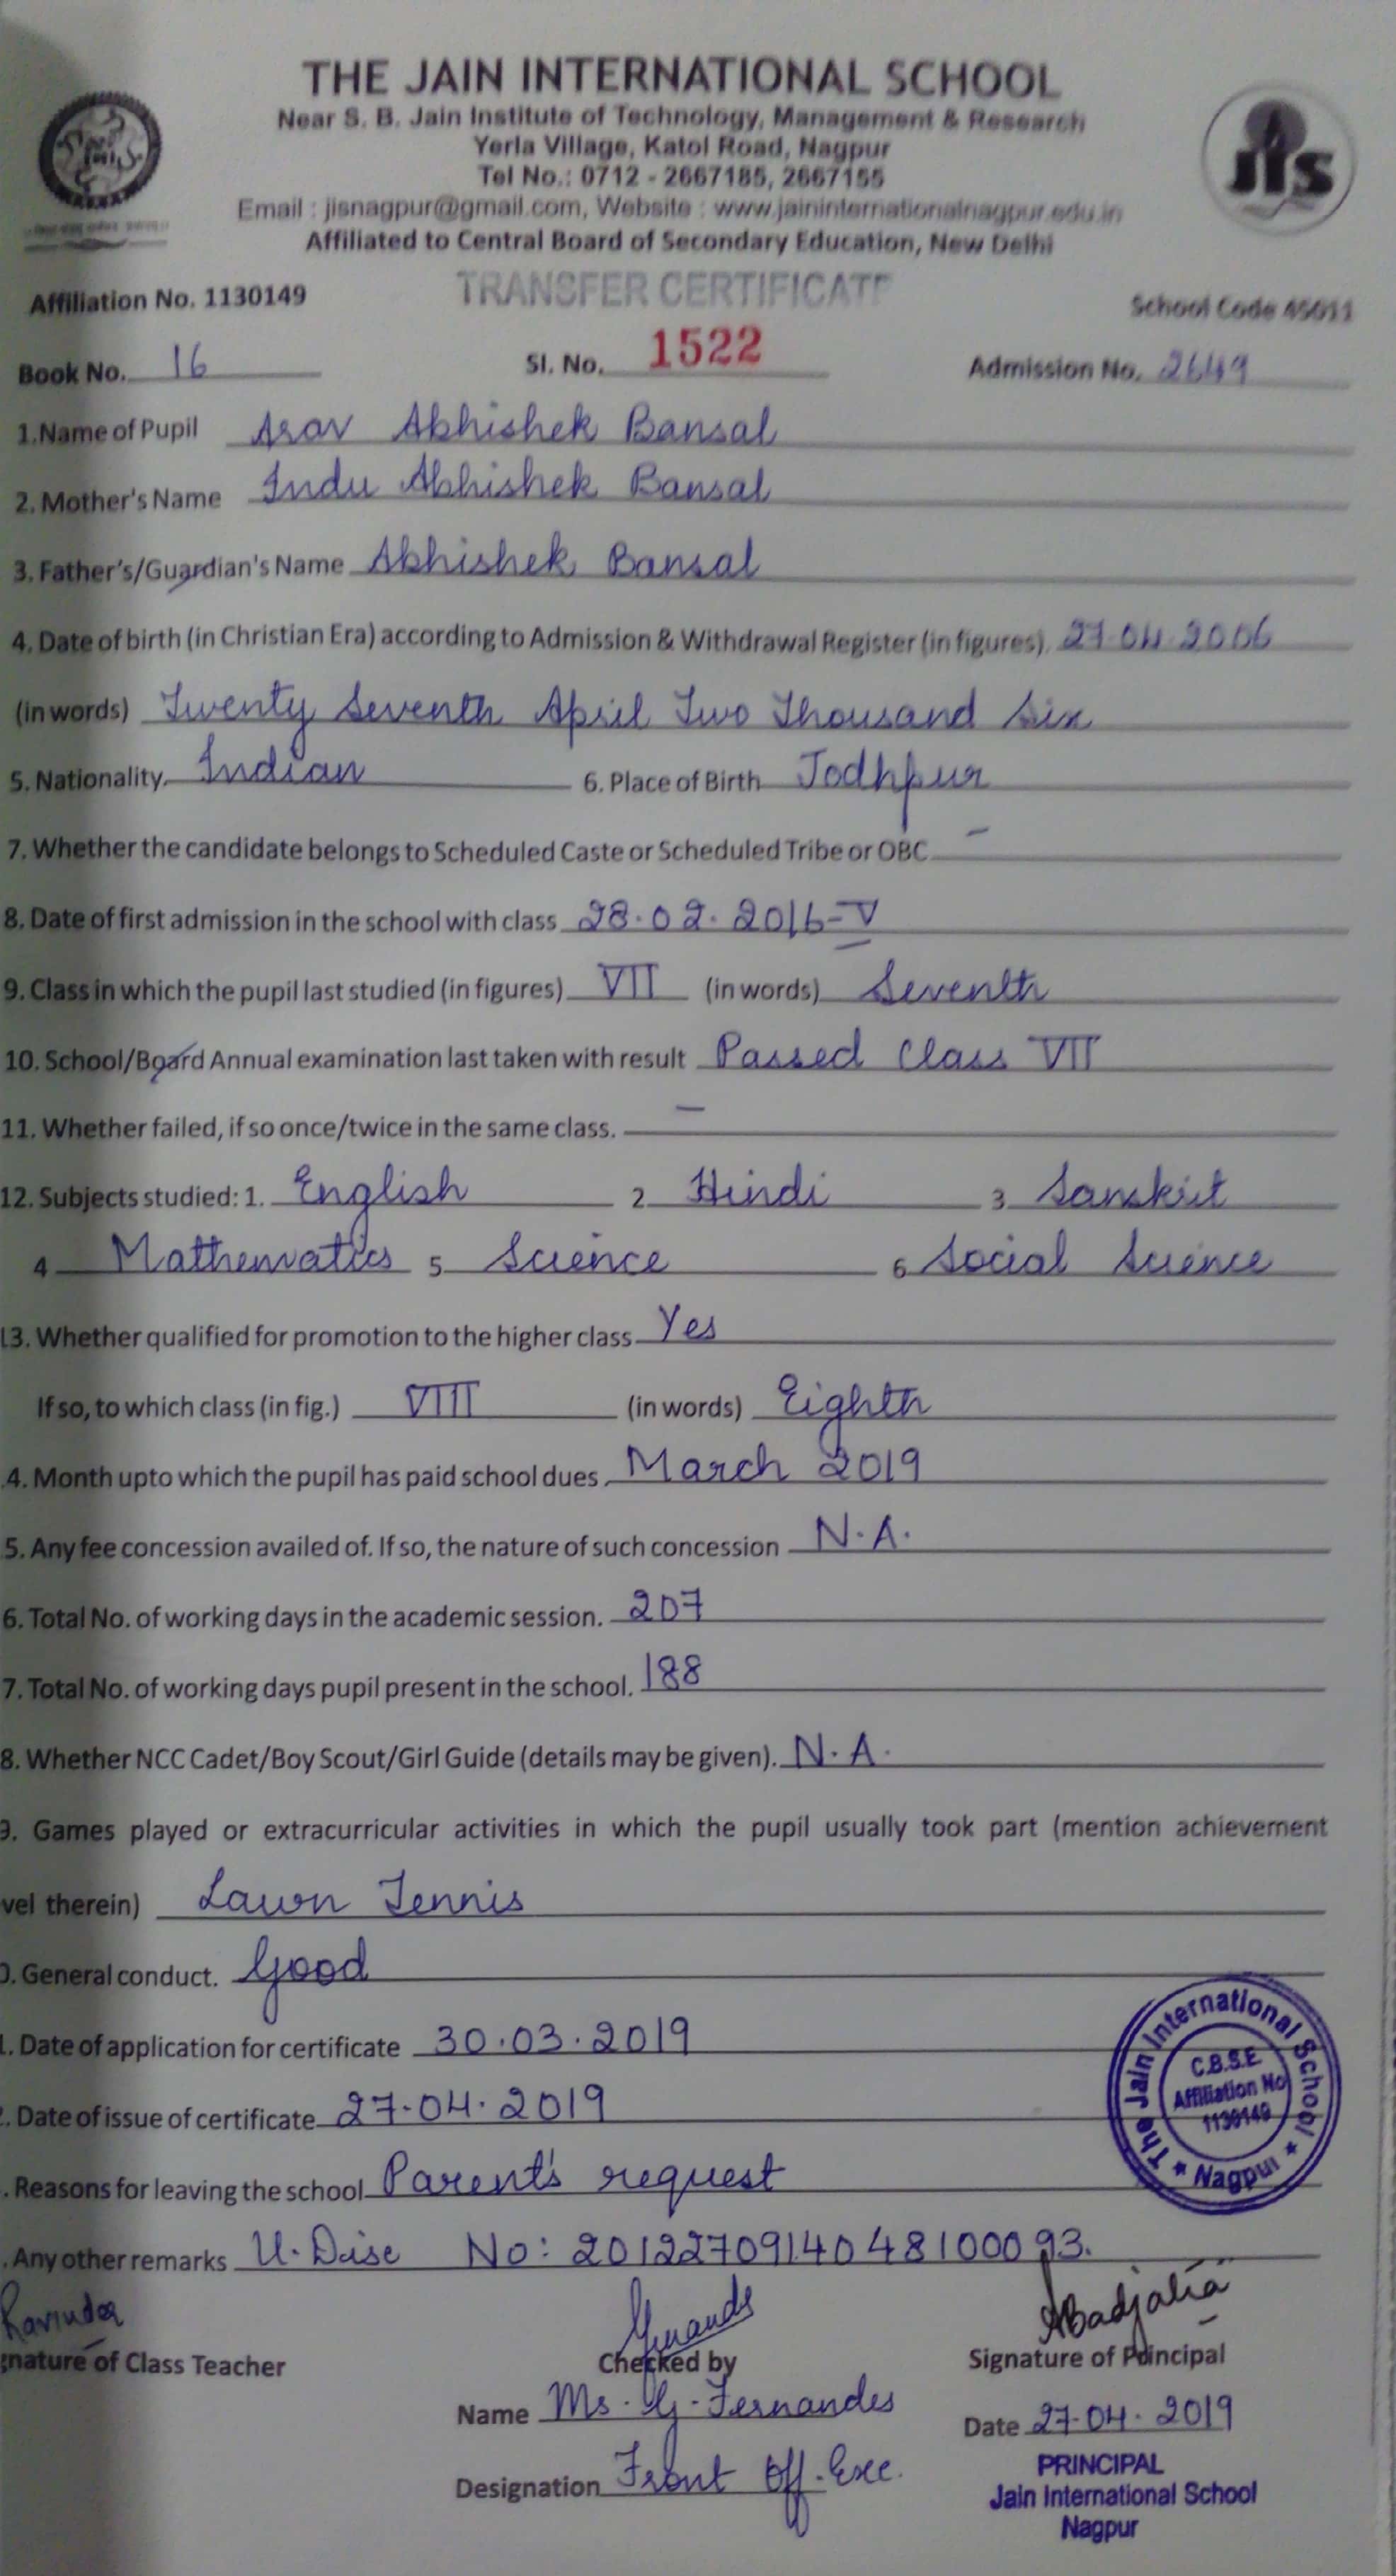 THE JAIN INTERNATIONAL SCHOOL
Near S. B. Jain Institute of Technology, Management & Research
Yerla Village, Katol Road, Nagpur
Tel No.: 0712 - 2667185, 2667155
Email : jisnagpur@gmail.com, Website : www.jaininternationalnagpur.edu.in
Affiliated to Central Board of Secondary Education, New Delhi
jis
TRANSFER CERTIFICATE
Affiliation No. 1130149 School Code 45011
Book No. 16 Sl. No. 1522 Admission No. 2649
1.Name of Pupil Arav Abhishek Bansal
2. Mother's Name Indu Abhishek Bansal
3. Father's/Guardian's Name Abhishek Bansal
4. Date of birth (in Christian Era) according to Admission & Withdrawal Register (in figures). 27.04.2006
(in words) Twenty Seventh April Two Thousand Six
5. Nationality. Indian 6. Place of Birth Jodhpur
7. Whether the candidate belongs to Scheduled Caste or Scheduled Tribe or OBC -
8. Date of first admission in the school with class 28.02.2016-V
9. Class in which the pupil last studied (in figures) VII (in words) Seventh
10. School/Board Annual examination last taken with result Passed Class VII
11. Whether failed, if so once/twice in the same class. -
12. Subjects studied: 1. English 2. Hindi 3. Sanskrit
4 Mathematics 5 Science 6 Social Science
13. Whether qualified for promotion to the higher class Yes
If so, to which class (in fig.) VIII (in words) Eighth
4. Month upto which the pupil has paid school dues. March 2019
5. Any fee concession availed of. If so, the nature of such concession N.A.
6. Total No. of working days in the academic session. 207
7. Total No. of working days pupil present in the school. 188
8. Whether NCC Cadet/Boy Scout/Girl Guide (details may be given). N.A.
9. Games played or extracurricular activities in which the pupil usually took part (mention achievement
vel therein) Lawn Tennis
0. General conduct. Good
1. Date of application for certificate 30.03.2019
2. Date of issue of certificate 27.04.2019
. Reasons for leaving the school Parent's request
. Any other remarks U.Dise No: 2012270914048100093.
The Jain International School ★ Nagpur ★
C.B.S.E
Affiliation No
1130149
Ravinder
gnature of Class Teacher Checked by Signature of Principal
Name Ms. G. Fernandes Date 27.04.2019
Designation Front Off. Exe.
PRINCIPAL
Jain International School
Nagpur